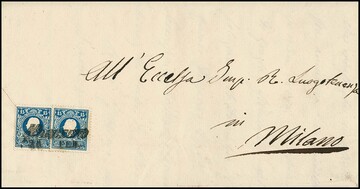 All' Eccelsa Imp. R. Luogotenenza
in
Milano